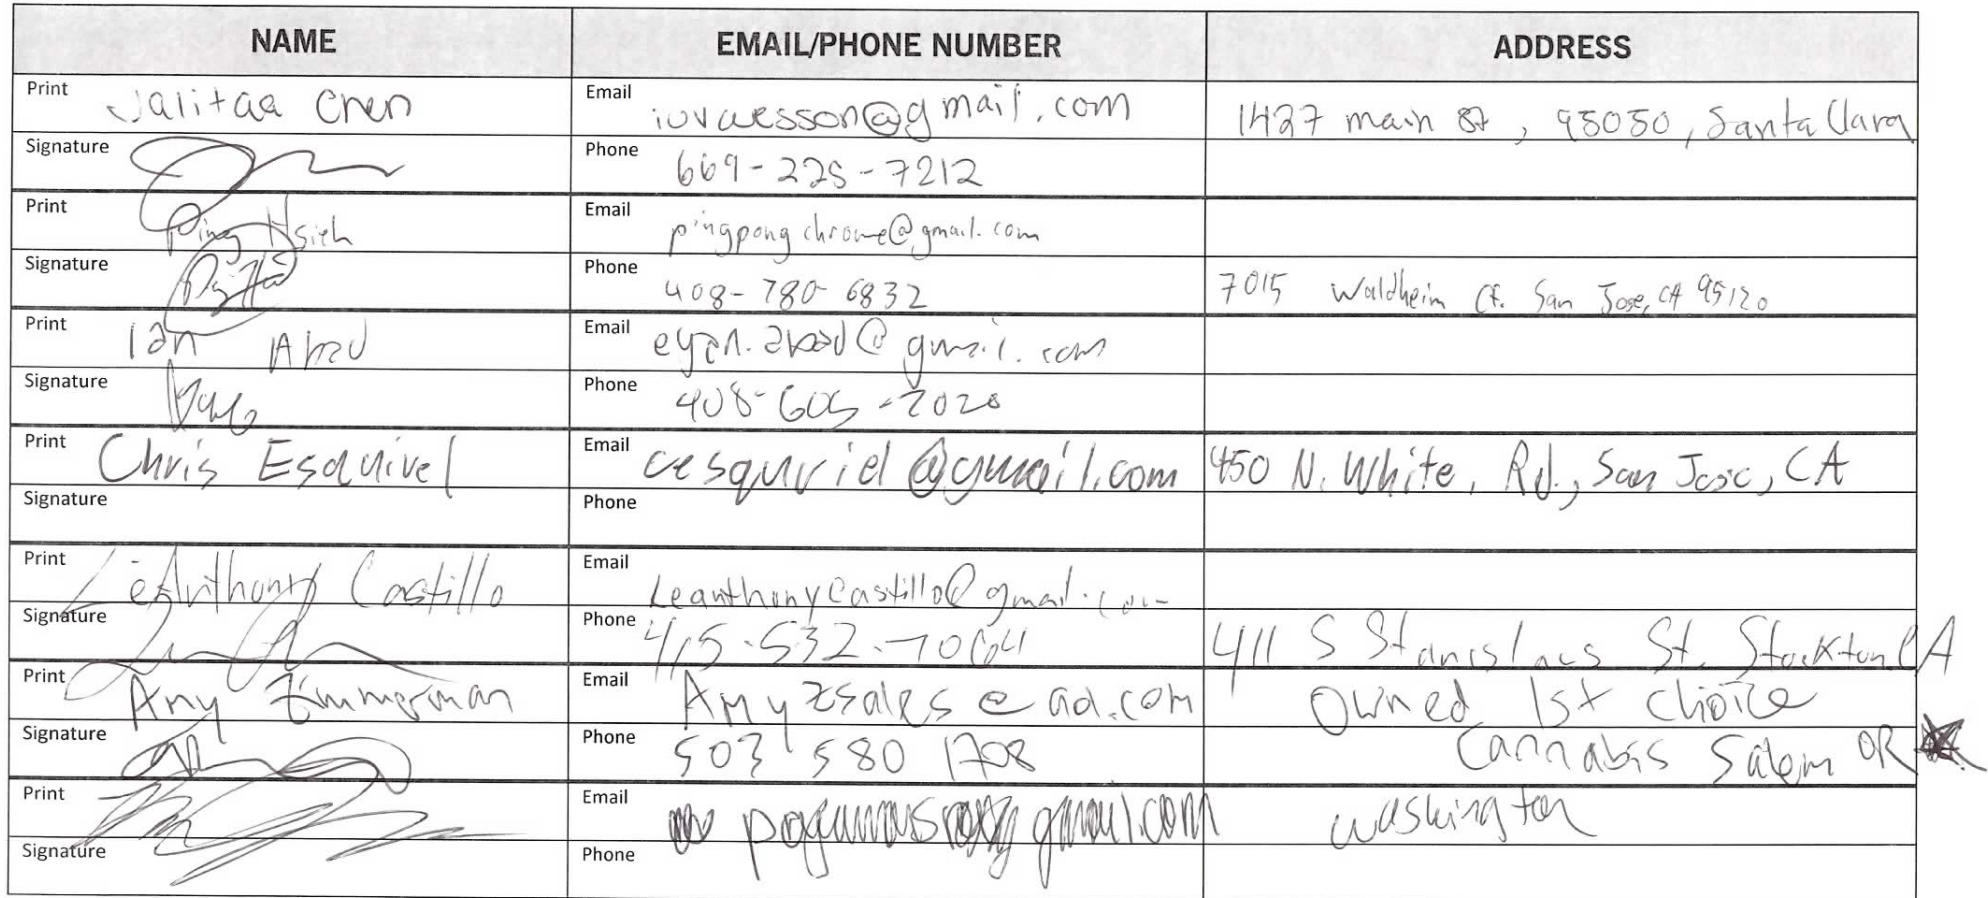 NAME EMAIL/PHONE NUMBER ADDRESS
Print Jalitaa Chen Email iuvaesson@gmail.com 1427 main St, 95050, Santa Clara
Signature Phone 669-225-7212
Print Ping Hsieh Email pingpongchrome@gmail.com
Signature Phone 408-780-6832 7015 Waldheim Ct. San Jose, CA 95120
Print Ian Abad Email eyan.abad@gmail.com
Signature Phone 408-605-2020
Print Chris Esquivel Email cesquriel@gmail.com 450 N. White, Rd., San Jose, CA
Signature Phone
Print LeAnthony Castillo Email Leanthonycastillo@gmail.com
Signature Phone 415-532-7064 411 S Stanislaus St. Stockton CA
Print Amy Zimmerman Email Amyzsales@aol.com Owned 1st Choice
Signature Phone 503 580 1708 Cannabis Salem OR
Print Email gmail.com Washington
Signature Phone